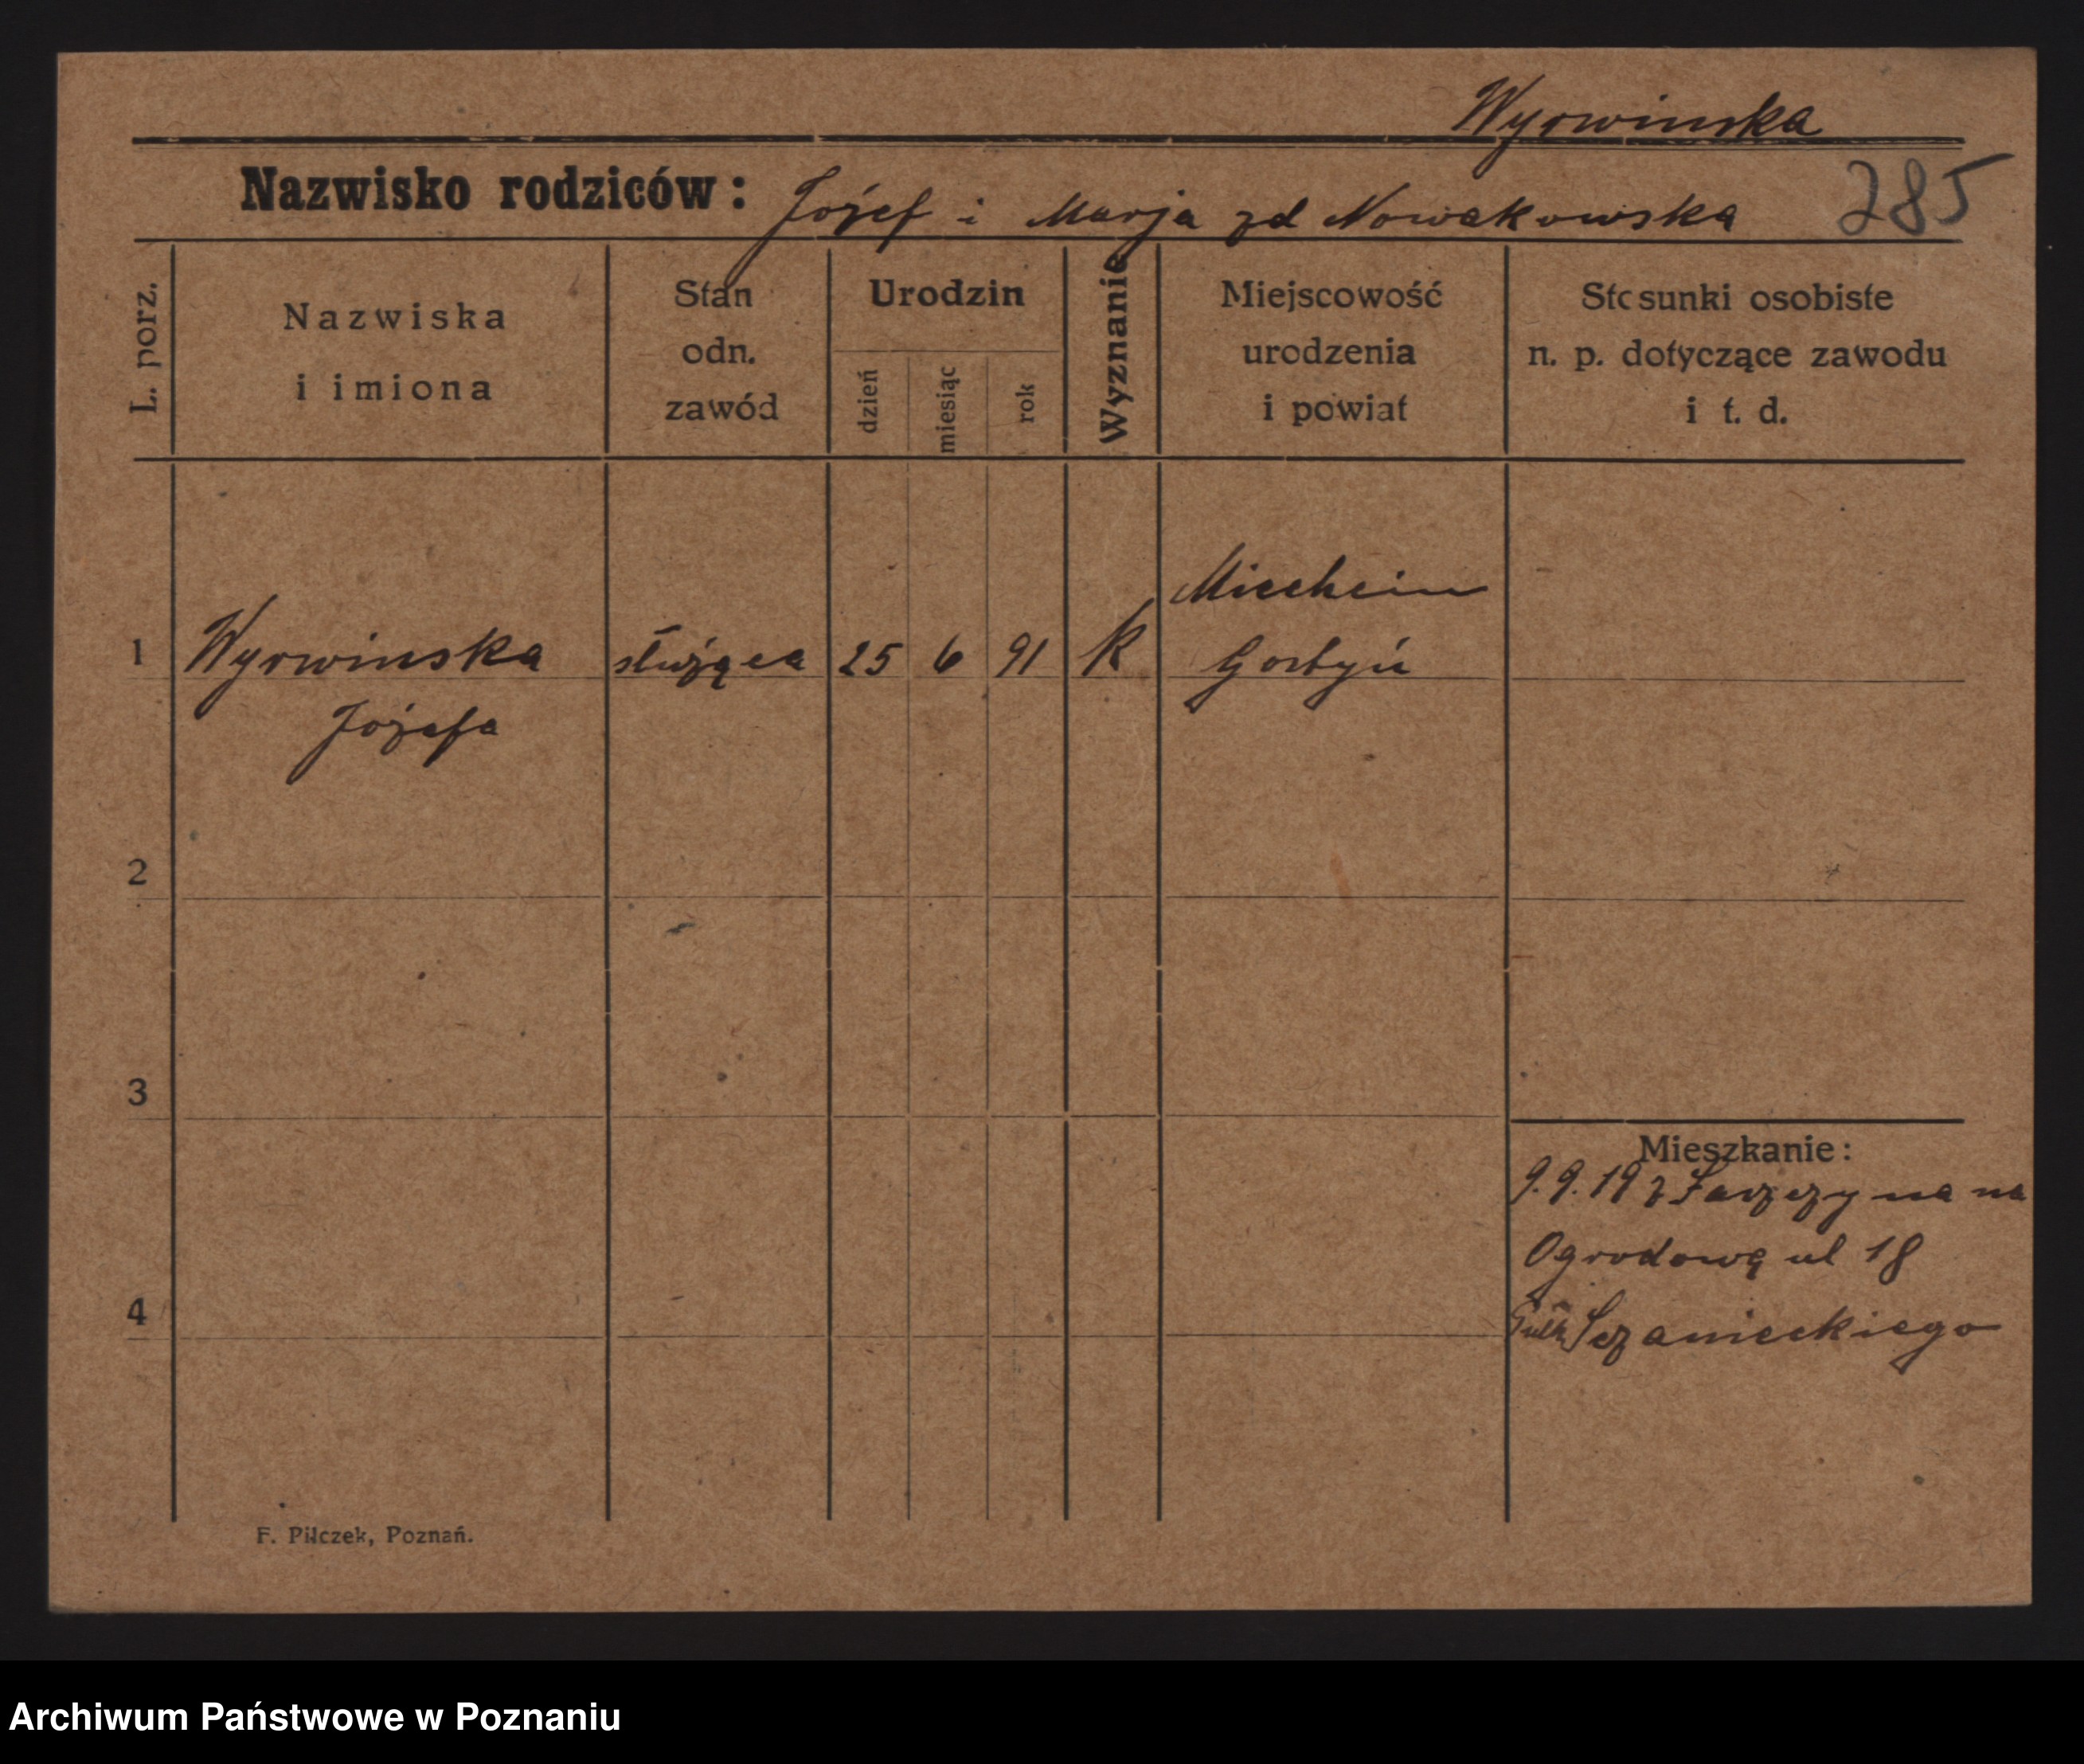 Wyrwinska
Nazwisko rodziców: Józef i Marja zd Nowakowska 285
L. porz.
Nazwiska
i imiona
Stan
odn.
zawód
Urodzin
dzień
miesiąc
rok
Wyznanie
Miejscowość
urodzenia
i powiat
Stosunki osobiste
n. p. dotyczące zawodu
i t. d.
Miechcin
1 Wyrwinska służąca 25 6 91 K Gostyń
Józefa
2
3
Mieszkanie:
9.9.19 z na
Ogrodową ul 18
4
Sczanieckiego
F. Pilczek, Poznań.
Archiwum Państwowe w Poznaniu